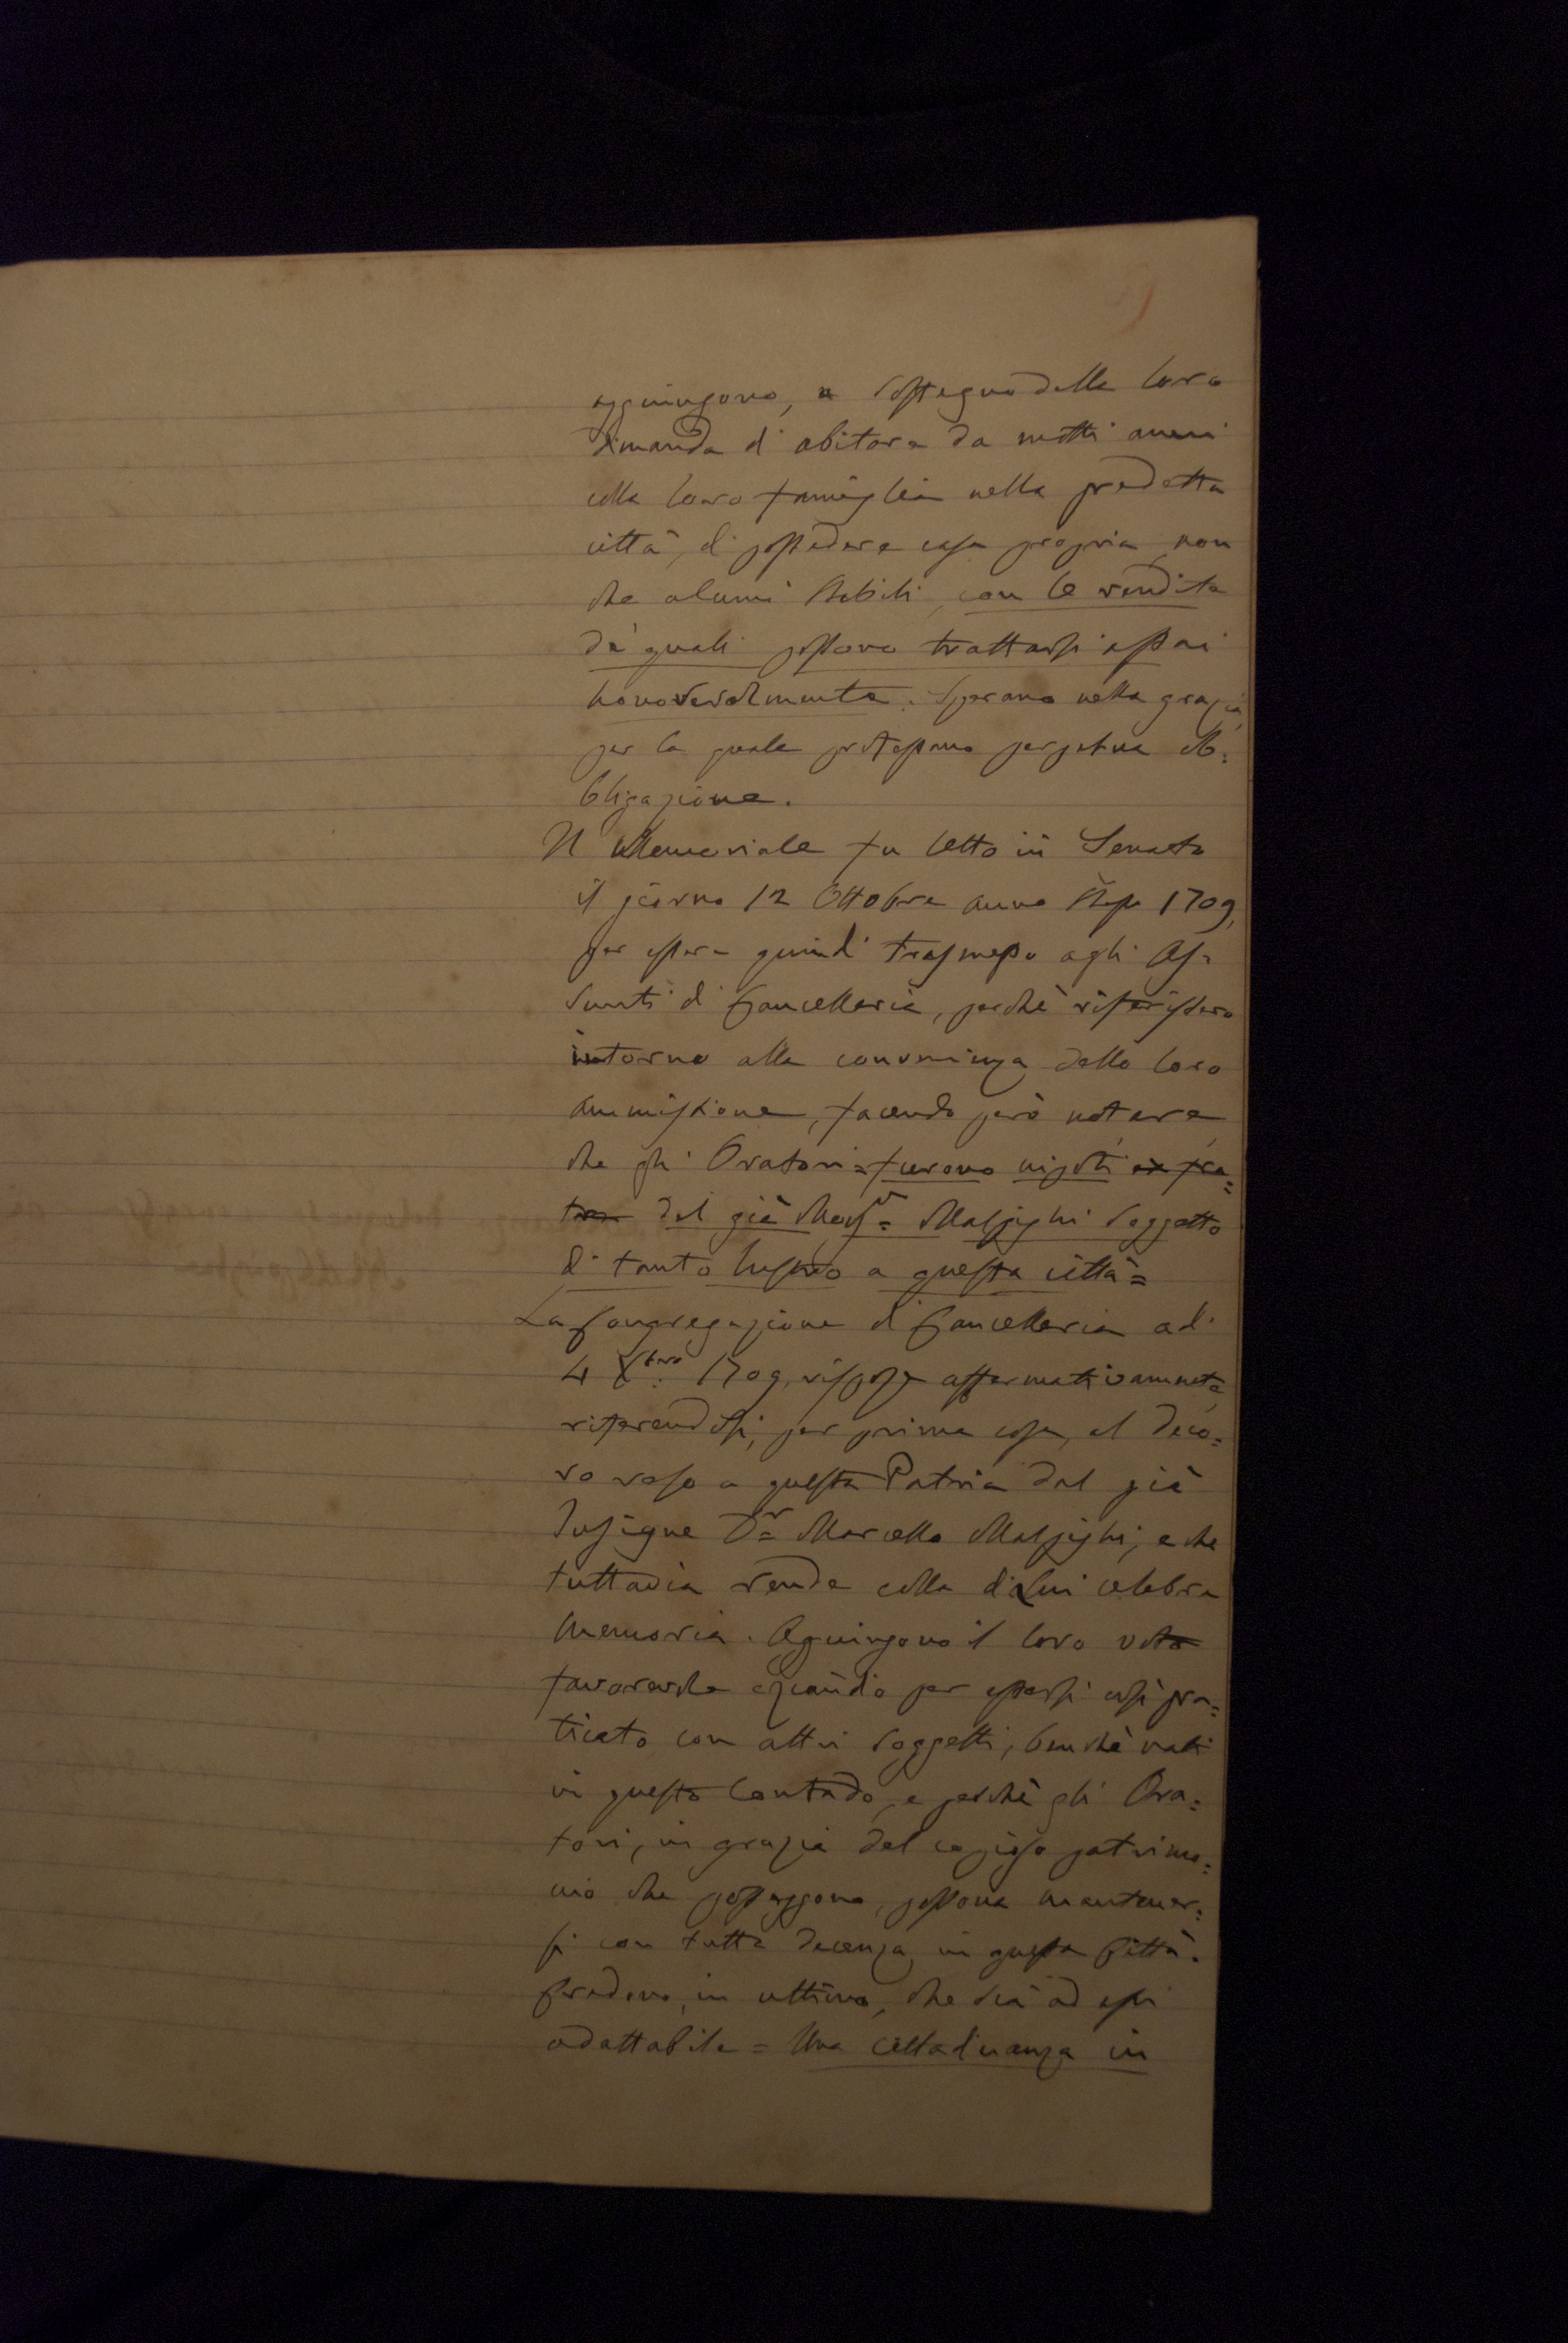 aggiungono, a sostegno della loro
dimanda di abitare da molti anni
colla loro famiglia nella predetta
città, di possedere casa propria non
che alcuni stabili, con le rendite
de' quali possono trattarsi assai
honorevolmente. Sperano nella grazia,
per la quale protestano perpetua ob=
bligazione.
Il Memoriale fu letto in Senato
il giorno 12 Ottobre anno stesso 1709,
per essere quindi trasmesso agli As=
sunti di Cancelleria, perchè riferissero
intorno alla convenienza della loro
ammissione, facendo però notare
che gli Oratori = furono nipoti ex fra=
tre del già Mons.r = Malpighi soggetto
di tanto lustro a questa città =
La Congregazione di Cancelleria adì
4 Xbre 1709, rispose affermativamente
riferendosi, per prima cosa, al deco=
ro reso a questa Patria dal già
Insigne D.r = Marcello Malpighi, e che
tuttavia rende colla di lui celebre
memoria. Aggiungono il loro voto
favorevole eziandio per essersi così pra=
ticato con altri soggetti, benchè nati
in questo Contado, e perchè gli Ora=
tori, in grazia del copioso patrimo=
nio che posseggono, possono mantener=
si con tutta decenza in questa Città.
Credono, in ultimo, che sia ad essi
adattabile = Una cittadinanza in